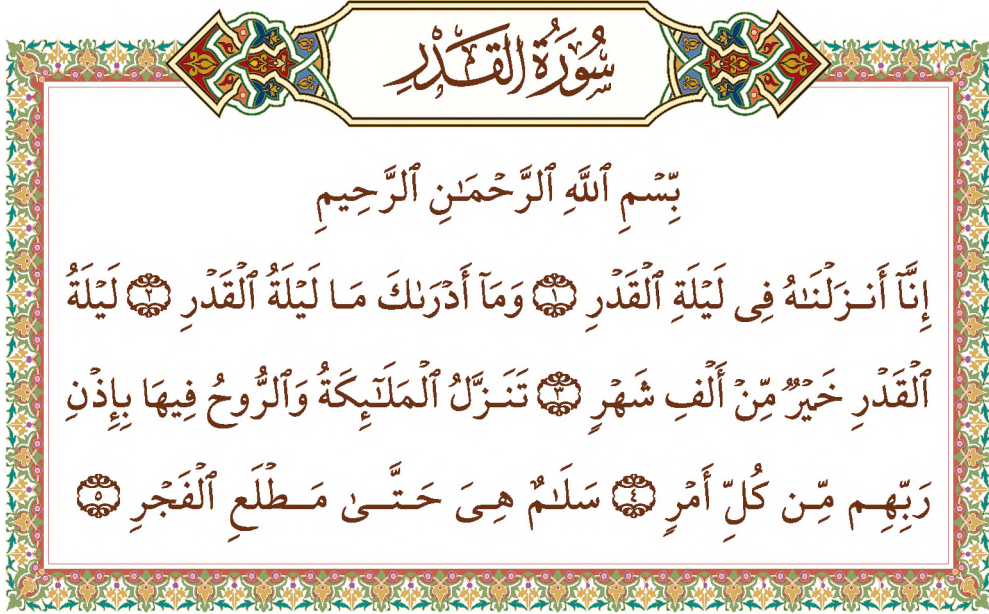 سُورَةُ القَدْرِ
بِّسْمِ ٱللَّهِ ٱلرَّحْمَـٰنِ ٱلرَّحِيمِ
إِنَّآ أَنـزَلْنَـٰهُ فِى لَيْلَةِ ٱلْقَدْرِ ١ وَمَآ أَدْرَىٰكَ مَـا لَيْلَةُ ٱلْقَدْرِ ٢ لَيْلَةُ
ٱلْقَدْرِ خَيْرٌ مِّنْ أَلْفِ شَهْرٍ ٣ تَنَـزَّلُ ٱلْمَلَـٰٓئِكَةُ وَٱلرُّوحُ فِيهَا بِإِذْنِ
رَبِّهِـم مِّـن كُلِّ أَمْرٍ ٤ سَلَـٰمٌ هِـىَ حَـتَّــىٰ مَـطْلَعِ ٱلْفَجْرِ ٥